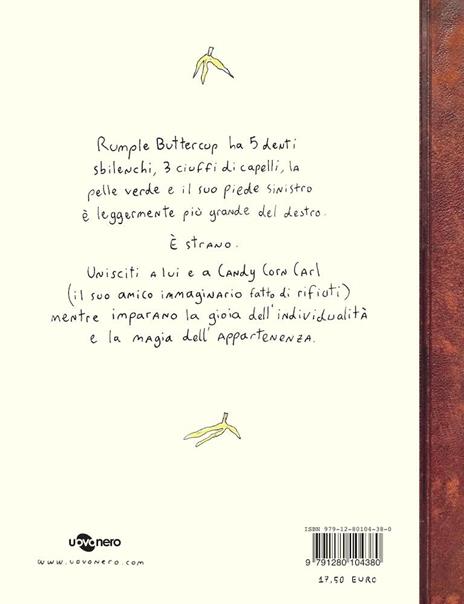 Rumple Buttercup ha 5 denti
sbilenchi, 3 ciuffi di capelli, la
pelle verde e il suo piede sinistro
è leggermente più grande del destro.
È strano.
Unisciti a lui e a Candy Corn Carl
(il suo amico immaginario fatto di rifiuti)
mentre imparano la gioia dell'individualità
e la magia dell'appartenenza.
uovonero
www.uovonero.com
ISBN 979-12-80104-38-0
9 791280 104380
17,50 EURO